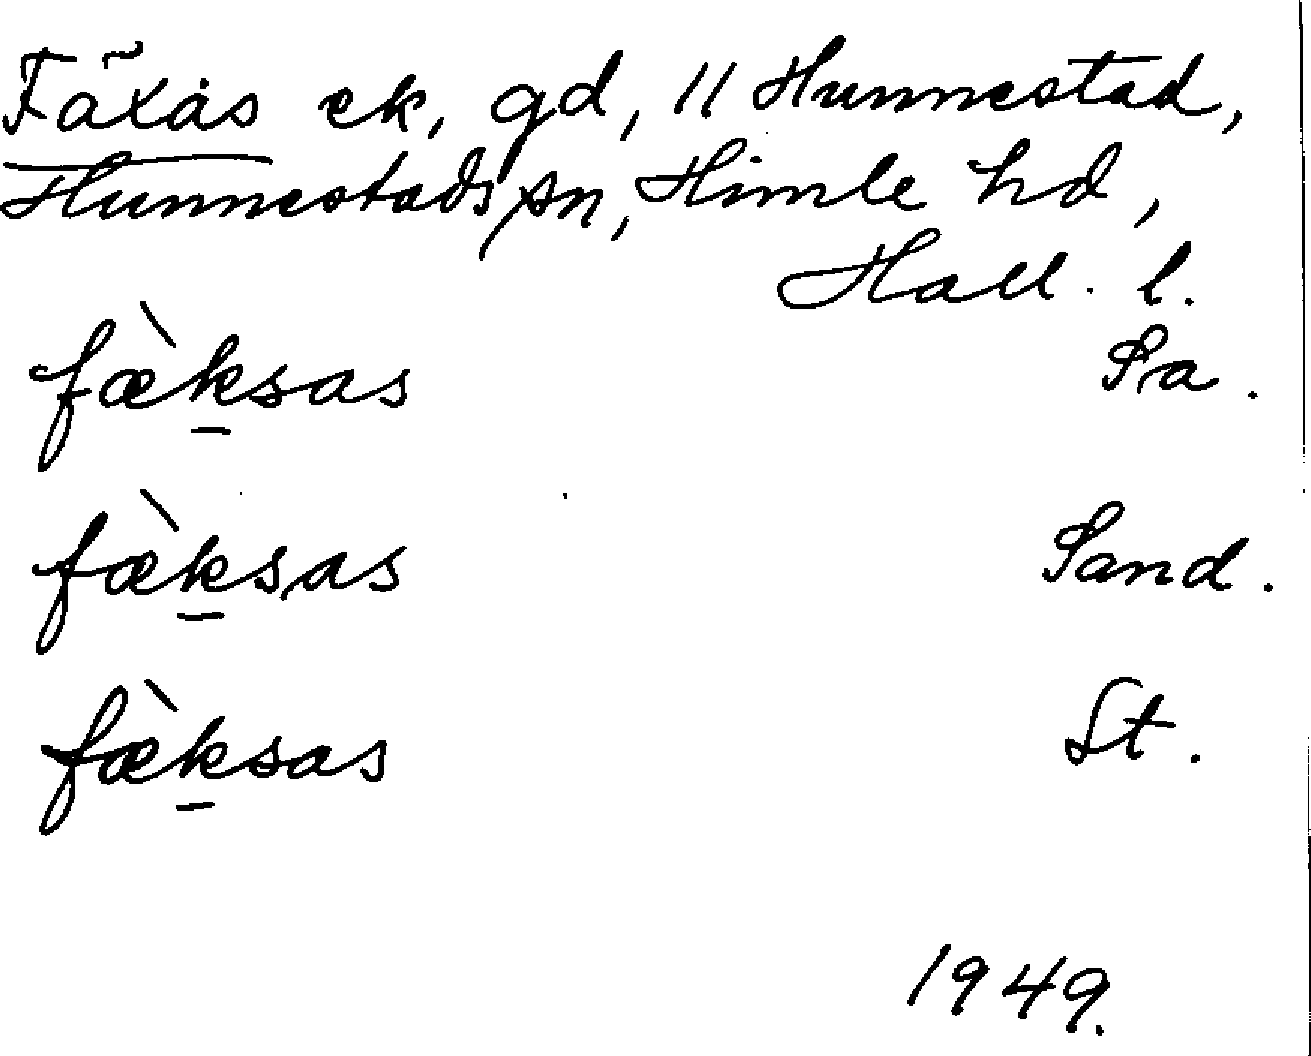 Fäxås ek, gd, 11 Hunnestad,
Hunnestads sn, Himle hd,
Hall. l.
fæ̀ksas Sa.
fæ̀ksas Sand.
fæ̀ksas St.
1949.